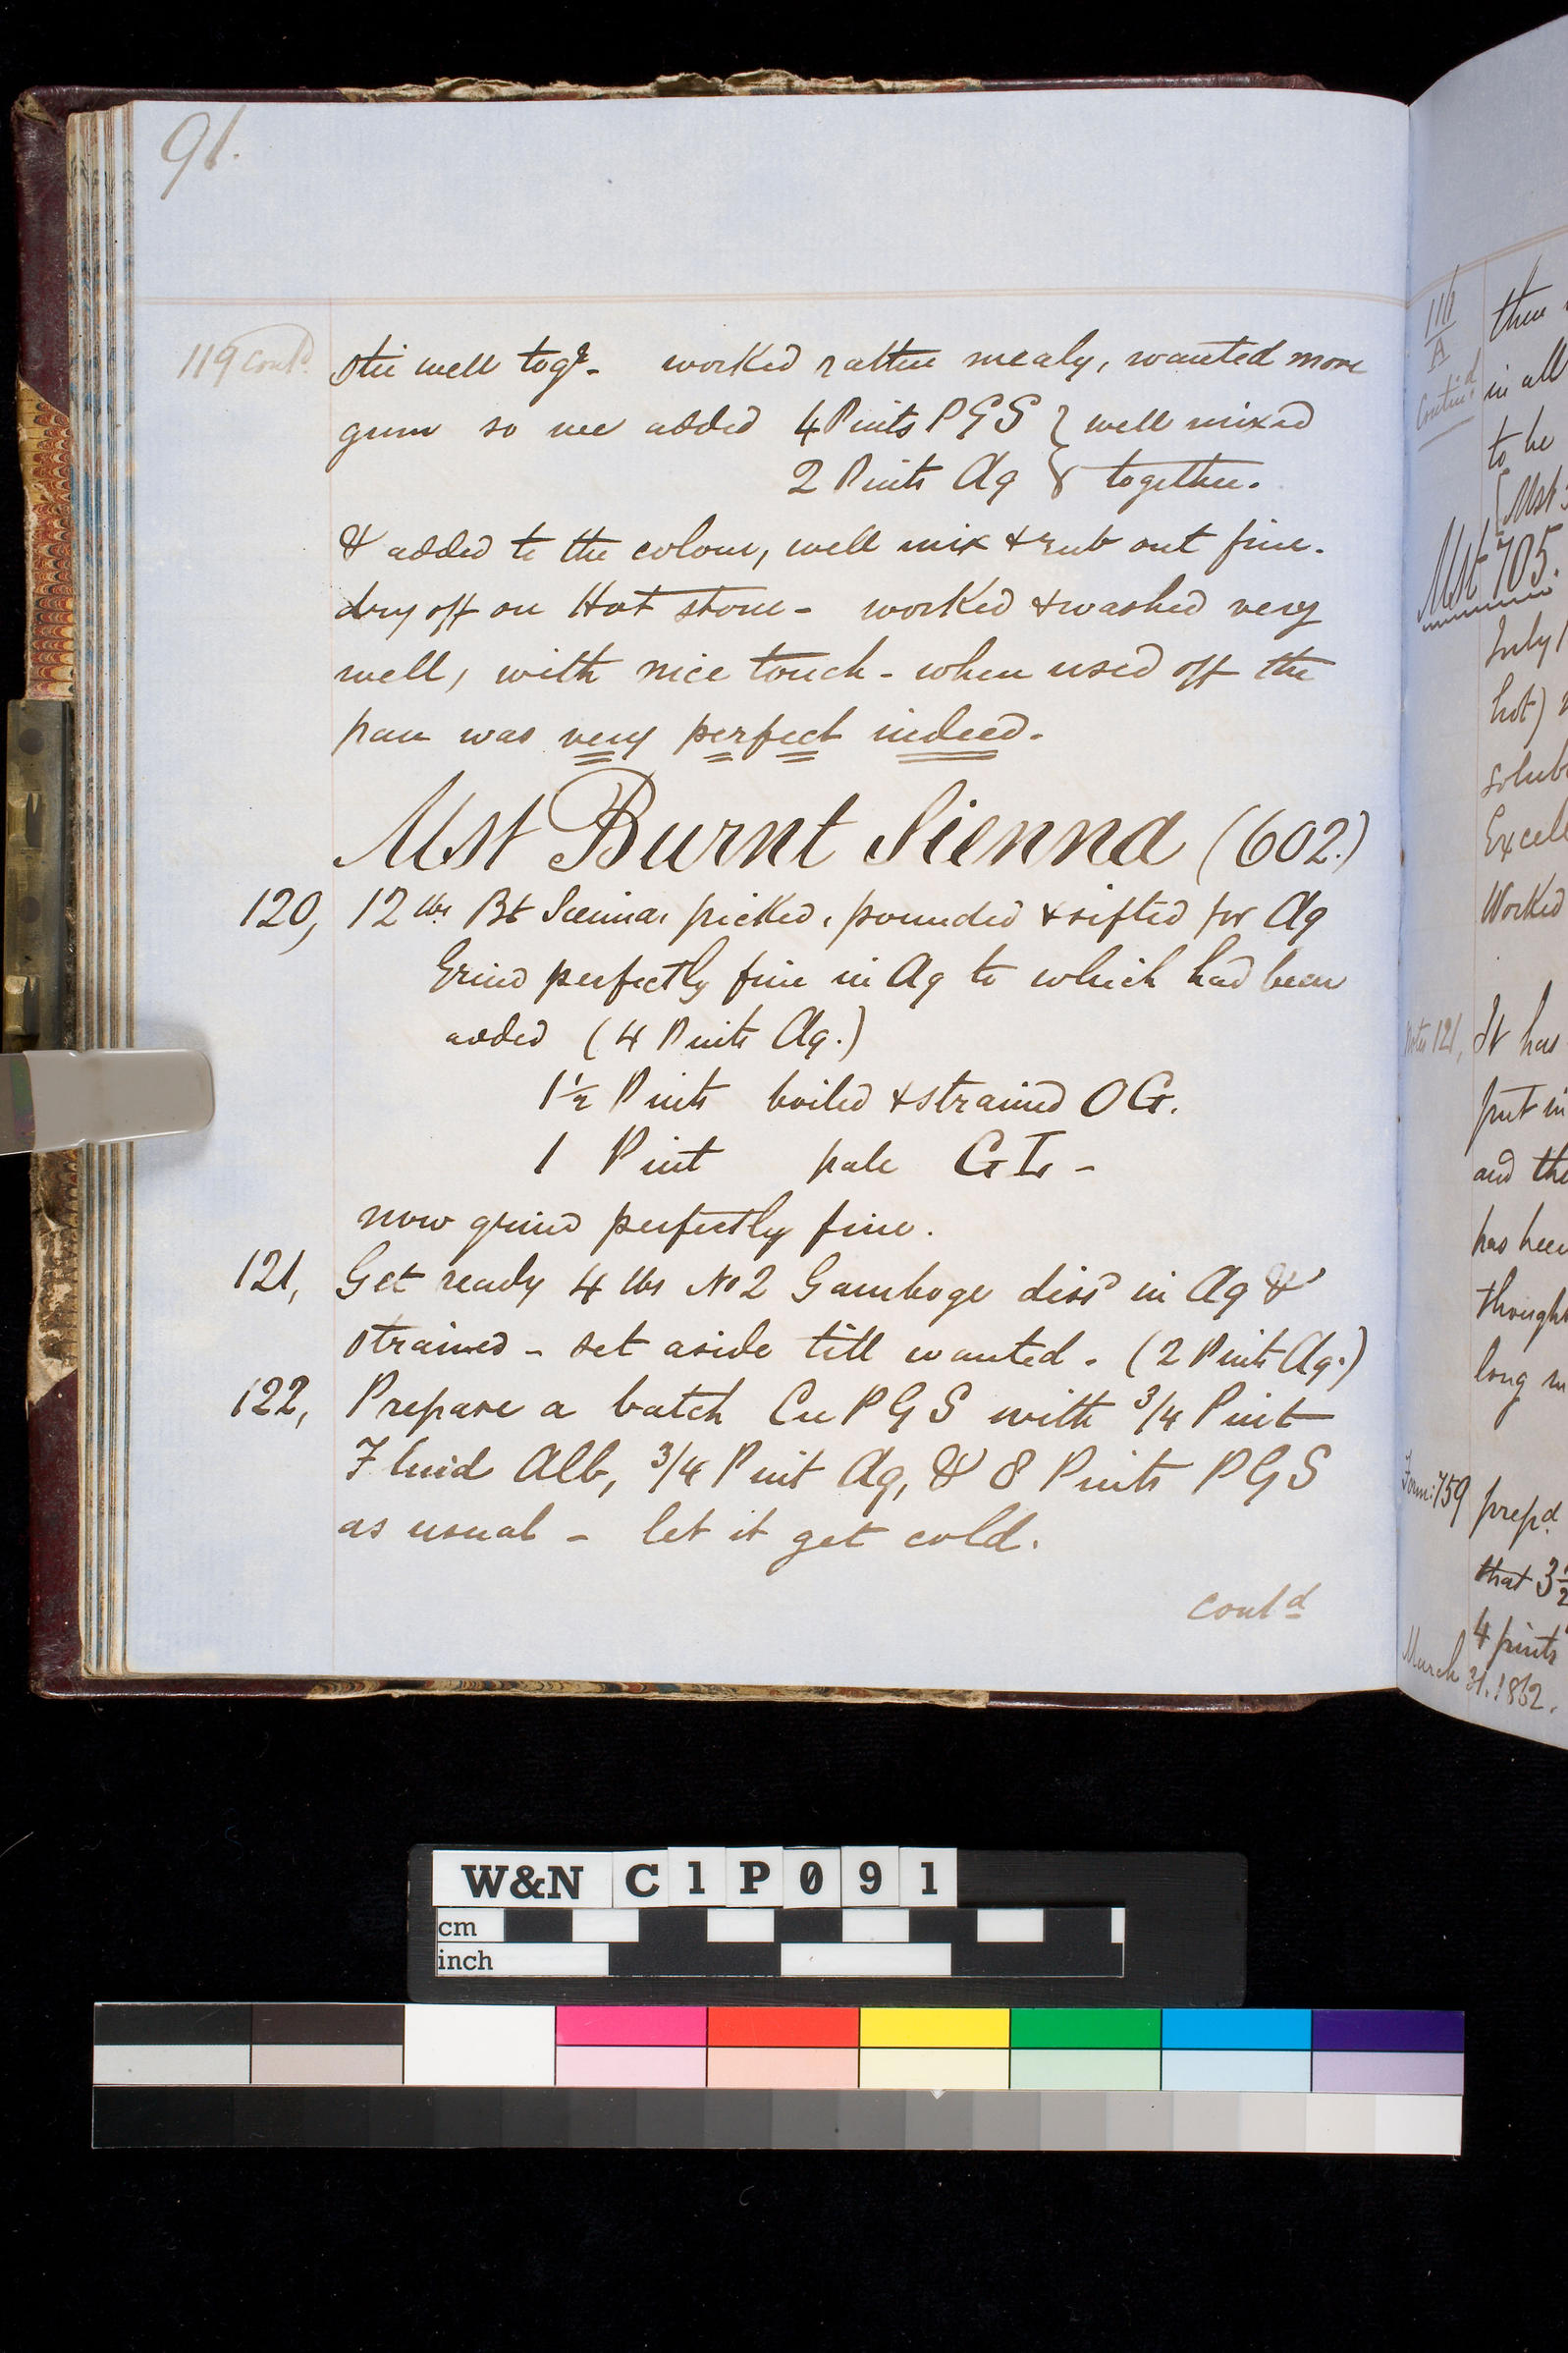 91.
119 Contd. Stir well togr. worked rather mealy, wanted more
gum so we added 4 Pints PGS } well mixed
2 Pints Aq } together.
& added to the colour, well mix & rub out fine.
dry off on Hot stone - worked & washed very
well, with nice touch - when used off the
pan was very perfect indeed.
Mst Burnt Sienna (602.)
120, 12 lbs Bt Sienna, picked, pounded & sifted for Aq
Grind perfectly fine in Aq to which had been
added (4 Pints Aq.)
1½ Pints boiled & strained OG.
1 Pint pale GL -
now grind perfectly fine.
121, Get ready 4 lbs No 2 Gamboge dissd in Aq &
strained - set aside till wanted. (2 Pints Aq.)
122, Prepare a batch Cu PGS with 3/4 Pint
Fluid Alb, 3/4 Pint Aq, & 8 Pints PGS
as usual - let it get cold.
contd
111/A Contind then
in all
to be
[Mst
Mst 705.
July
hot)
solub
Excell
Worked
Note 121, It has
put in
and the
has been
thought
long
Form: 759 prepd
that 3½
4 pints
March 31. 1862.
W&N C1P091
cm
inch